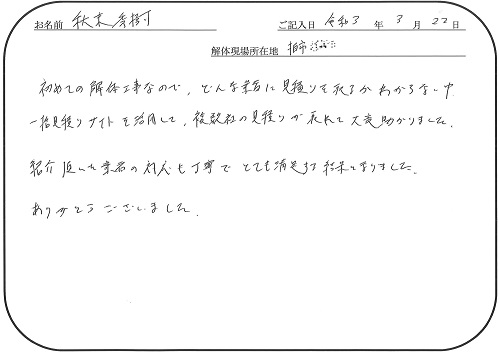 お名前 秋末 ご記入日 令和3 年 3 月 22 日
解体現場所在地
初めての解体工事なので、どんな業者に見積りを取るかわからない中
一括見積りサイトを活用して、複数社の見積りが取れて大変助かりました。
紹介頂いた業者の対応も丁寧でとても満足する結果となりました。
ありがとうございました。